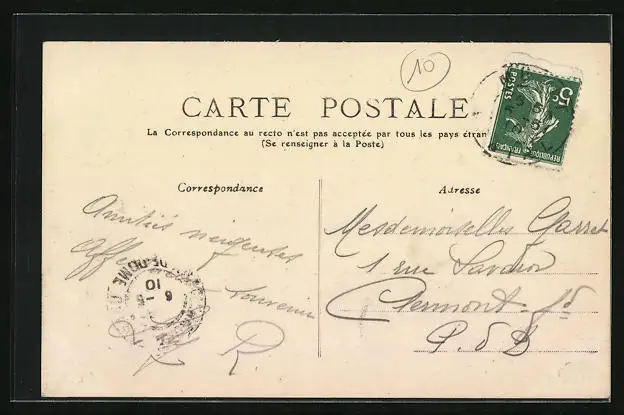 10
CARTE POSTALE
La Correspondance au recto n'est pas acceptée par tous les pays étran
(Se renseigner à la Poste)
5c
POSTES
REPUBLIQUE FRANÇAISE
Correspondance
Adresse
Amitiés neigeuses
souvenir
R.
DE-DOME
6 - 
10
Mesdemoiselles Garret
1 rue
Clermont-Fd
P. d D